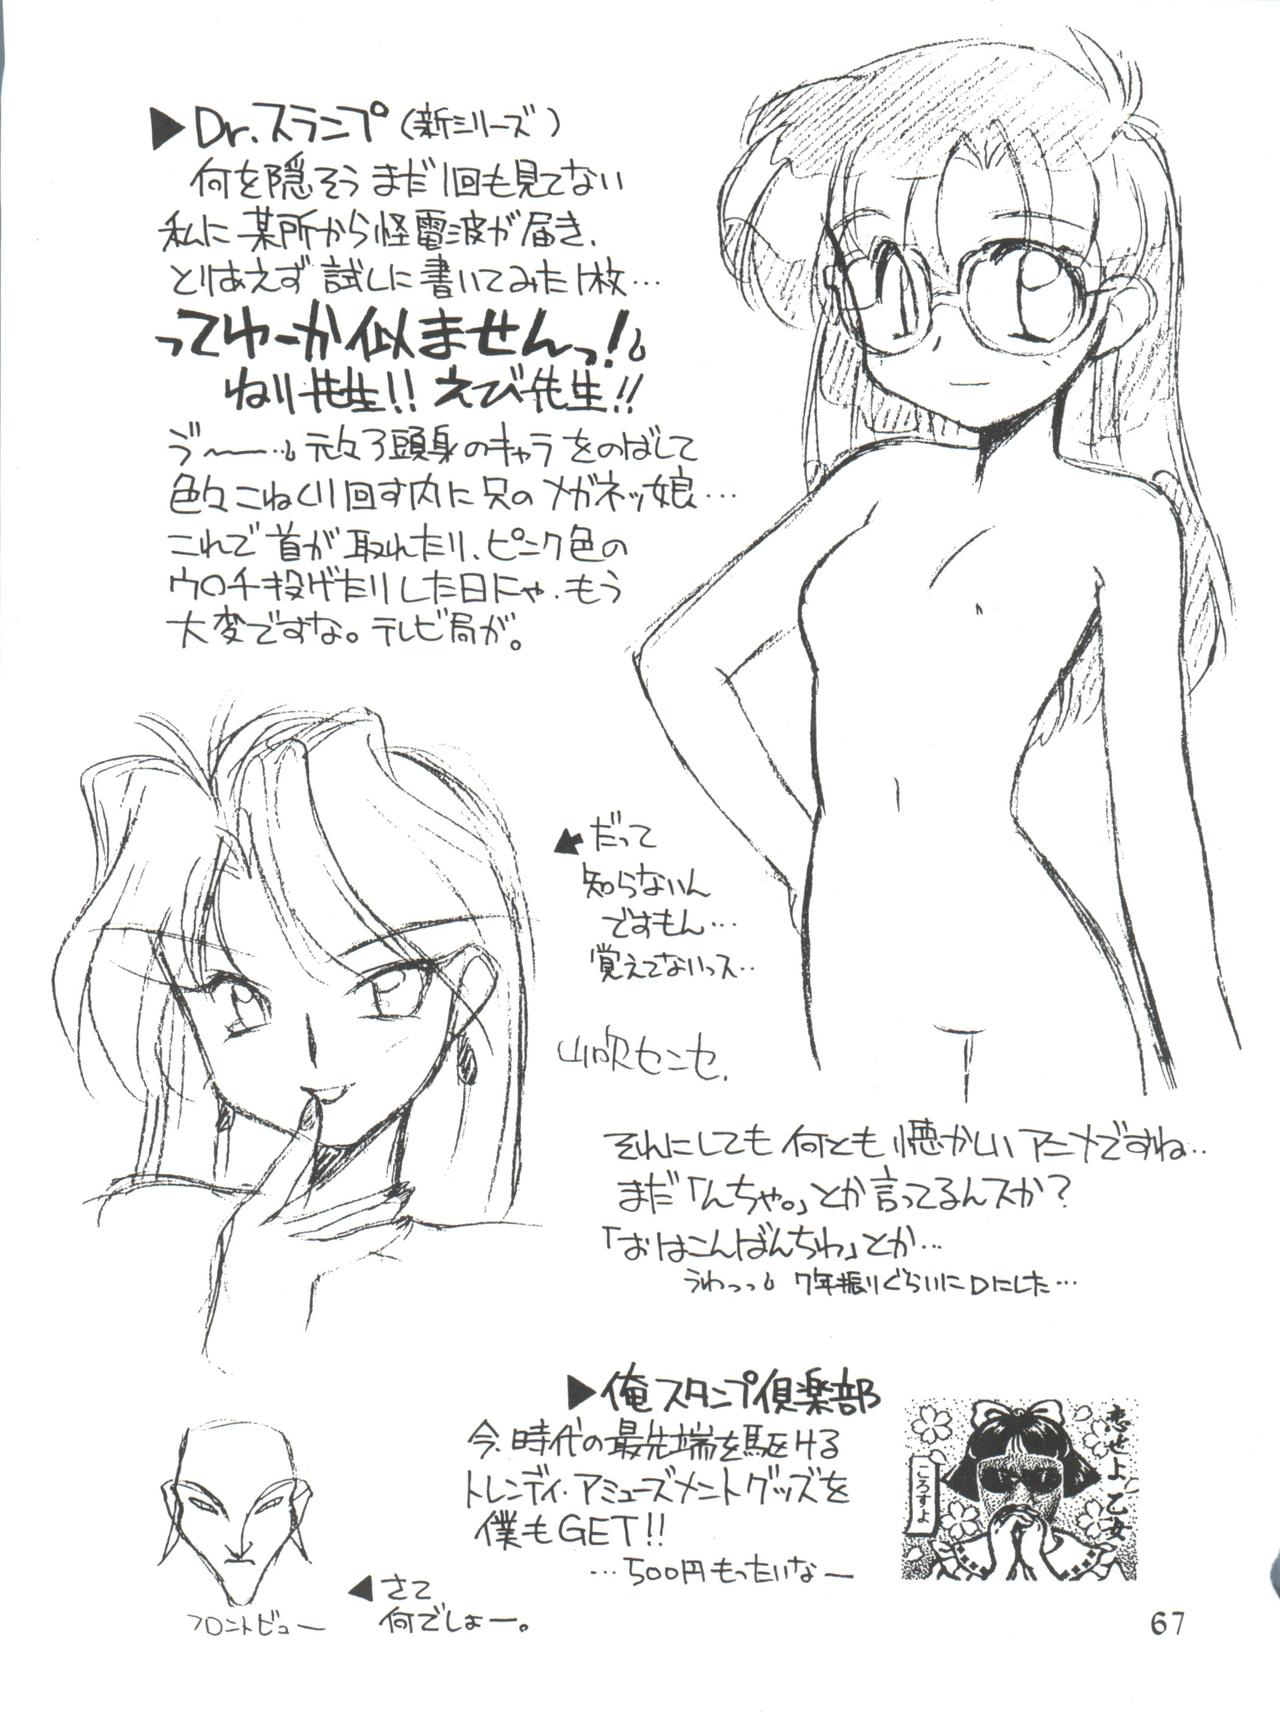 ▶Dr.スランプ(新シリーズ)
何を隠そうまだ1回も見てない
私に某所から怪電波が届き、
とりあえず試しに書いてみた1枚…
ってゆーか似ませんっ!
ねり先生!!えび先生!!
元々3頭身のキャラをのばして
色々こねくり回す内に只のメガネッ娘…
これで首が取れたり、ピンク色の
ウ○チ投げたりした日にゃ、もう
大変ですな。テレビ局が。
だって
知らないん
ですもん…
覚えてないっス..
山吹センセ.
それにしても何とも懐かしいアニメですね..
まだ「んちゃ。」とか言ってるんスか?
「おはこんばんちわ」とか…
うわっっ 7年振りぐらいにDにした…
▶俺スタンプ倶楽部
今、時代の最先端を駆ける
トレンディ・アミューズメントグッズを
僕もGET!!
…500円もったいなー
恋せよ乙女
ころすよ
◀さて
何でしょー。
フロントビュー
67